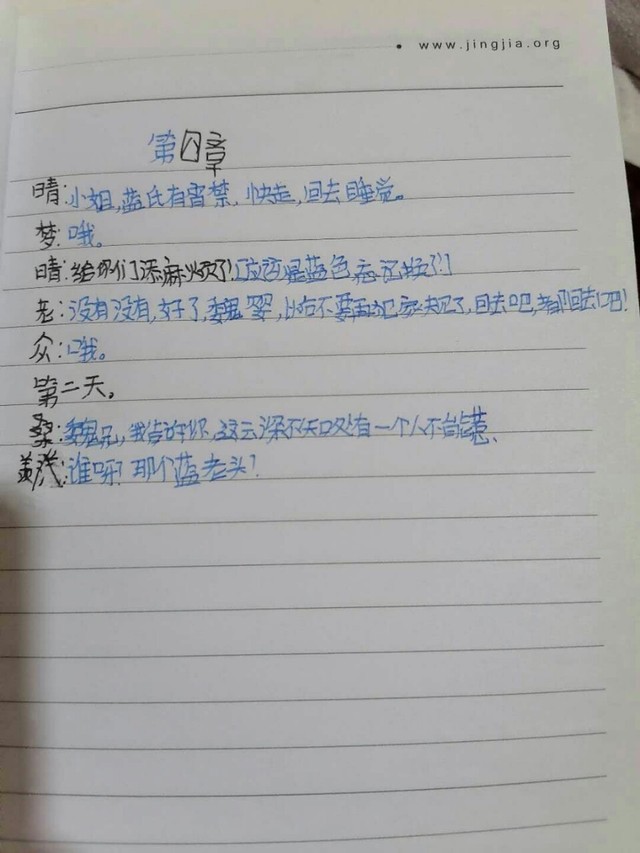 www.jingjia.org
第四章
晴:小姐,蓝氏有宵禁,快走,回去睡觉。
梦:哦。
晴:给你们添麻烦了![应该是蓝色,忘记换了!]
老:没有没有,好了,魏婴,以后不要再犯家规了,回去吧,都回去吧!
众:哦。
第二天。
桑:魏兄,我告诉你,这云深不知处有一个人不能惹、
羡:谁呀?那个蓝老头?